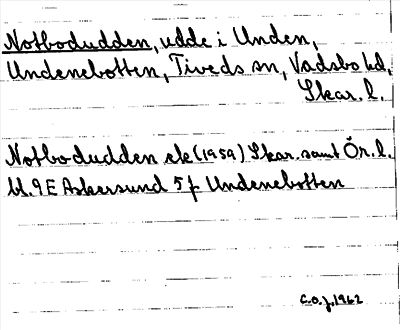 Notbodudden, udde i Unden,
Undenebotten, Tiveds sn, Vadsbo hd,
Skar. l.
Notbodudden ek (1959) Skar. samt Ör. l.
bl. 9E Askersund 5 f Undenebotten
C.O.J. 1962